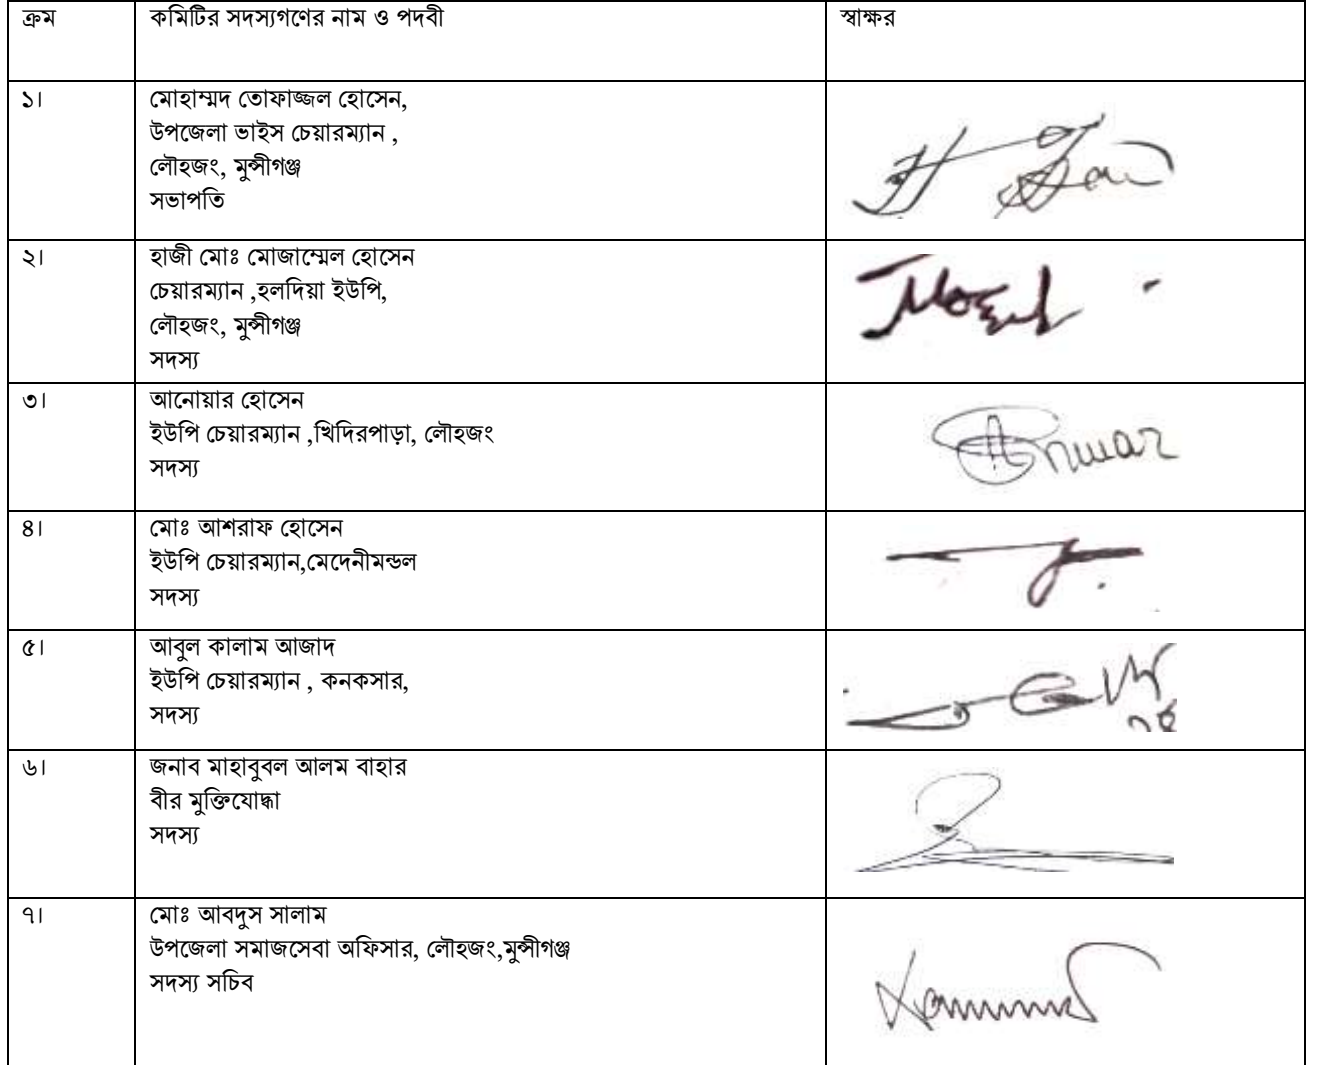 ক্রম কমিটির সদস্যগণের নাম ও পদবী স্বাক্ষর
১। মোহাম্মদ তোফাজ্জল হোসেন,
উপজেলা ভাইস চেয়ারম্যান ,
লৌহজং, মুন্সীগঞ্জ
সভাপতি
২। হাজী মোঃ মোজাম্মেল হোসেন
চেয়ারম্যান ,হলদিয়া ইউপি,
লৌহজং, মুন্সীগঞ্জ
সদস্য
৩। আনোয়ার হোসেন
ইউপি চেয়ারম্যান ,খিদিরপাড়া, লৌহজং
সদস্য
Anwar
৪। মোঃ আশরাফ হোসেন
ইউপি চেয়ারম্যান,মেদেনীমন্ডল
সদস্য
৫। আবুল কালাম আজাদ
ইউপি চেয়ারম্যান , কনকসার,
সদস্য
৬। জনাব মাহাবুবল আলম বাহার
বীর মুক্তিযোদ্ধা
সদস্য
৭। মোঃ আবদুস সালাম
উপজেলা সমাজসেবা অফিসার, লৌহজং,মুন্সীগঞ্জ
সদস্য সচিব